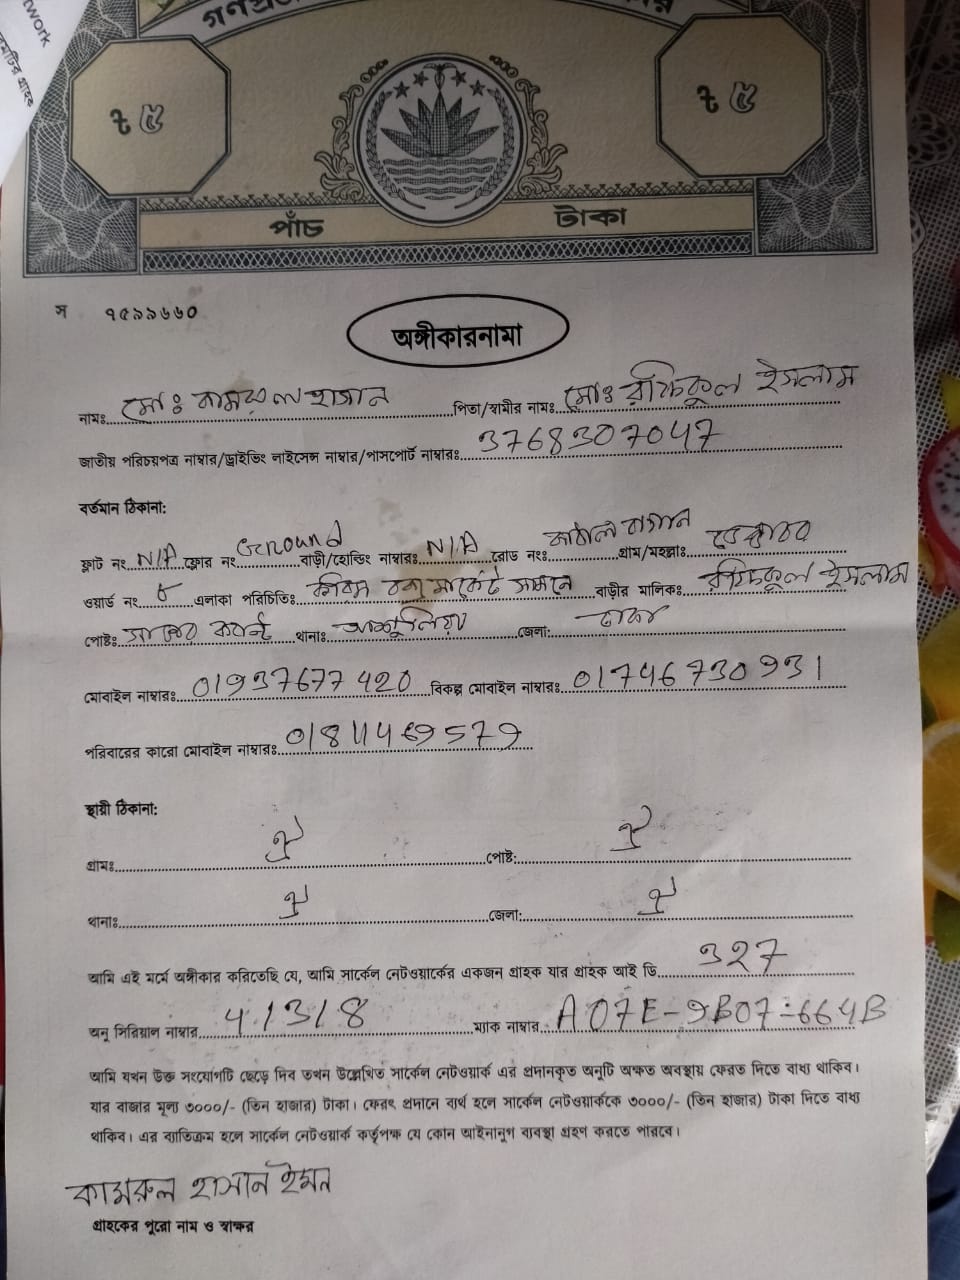 twork
৳ ৫
৳ ৫
পাঁচ টাকা
স ৭৫৯৯৬৬০
অঙ্গীকারনামা
নামঃ মোঃ কামরুল হাসান পিতা/স্বামীর নামঃ মোঃ রফিকুল ইসলাম
জাতীয় পরিচয়পত্র নাম্বার/ড্রাইভিং লাইসেন্স নাম্বার/পাসপোর্ট নাম্বারঃ 3768307047
বর্তমান ঠিকানা:
ফ্লাট নং N/A ফ্লোর নং Ground বাড়ী/হোল্ডিং নাম্বারঃ N/A রোড নংঃ কাঠাল বাগান গ্রাম/মহল্লাঃ
ওয়ার্ড নং ৮ এলাকা পরিচিতিঃ মার্কেট সামনে বাড়ীর মালিকঃ রফিকুল ইসলাম
পোষ্টঃ থানাঃ আশুলিয়া জেলা: ঢাকা
মোবাইল নাম্বারঃ 01937677420 বিকল্প মোবাইল নাম্বারঃ 01746730931
পরিবারের কারো মোবাইল নাম্বারঃ 01811469579
স্থায়ী ঠিকানা:
গ্রামঃ ঐ পোষ্ট: ঐ
থানাঃ ঐ জেলা: ঐ
আমি এই মর্মে অঙ্গীকার করিতেছি যে, আমি সার্কেল নেটওয়ার্কের একজন গ্রাহক যার গ্রাহক আই ডি 327
অনু সিরিয়াল নাম্বার 41318 ম্যাক নাম্বার A07E-9B07-664B
আমি যখন উক্ত সংযোগটি ছেড়ে দিব তখন উল্লেখিত সার্কেল নেটওয়ার্ক এর প্রদানকৃত অনুটি অক্ষত অবস্থায় ফেরত দিতে বাধ্য থাকিব।
যার বাজার মূল্য ৩০০০/- (তিন হাজার) টাকা। ফেরৎ প্রদানে ব্যর্থ হলে সার্কেল নেটওয়ার্ককে ৩০০০/- (তিন হাজার) টাকা দিতে বাধ্য
থাকিব। এর ব্যতিক্রম হলে সার্কেল নেটওয়ার্ক কর্তৃপক্ষ যে কোন আইনানুগ ব্যবস্থা গ্রহণ করতে পারবে।
কামরুল হাসান ইমন
গ্রাহকের পুরো নাম ও স্বাক্ষর